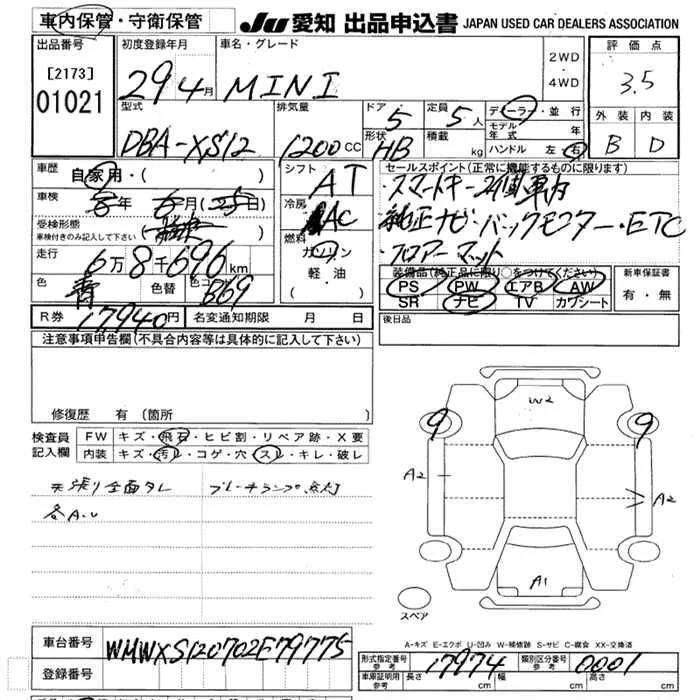 車内保管・守衛保管 JU 愛知 出品申込書 JAPAN USED CAR DEALERS ASSOCIATION
出品番号 初度登録年月 車名・グレード 2WD・4WD 評価点
[2173] 01021 29 4月 MINI 3.5
型式 排気量 ドア 定員 ディーラー・並行 外装 内装
DBA-XS12 1200CC 5 5人 モデル年式 年 B D
形状 HB 積載 kg ハンドル 左・右
車歴 自家用・( ) シフト AT セールスポイント(正常に機能するものに限ります)
車検 年 6月 日 冷房 AC ・スマートキー
受検形態 車検付きのみ記入して下さい ( ) 純正ナビ・バックモニター・ETC
走行 6万8千696km 燃料 ガソリン 軽油 ・フロアーマット
色 青 色替 色コ B69 装備品(純正品に限り○をつけてください) 新車保証書
PS PW エアB AW 有・無
SR ナビ TV カワシート
R券 17940円 名変通知期限 月 日 後日品
注意事項申告欄(不具合内容等は具体的に記入して下さい)
修復歴 有(箇所
検査員記入欄 FW キズ・飛石・ヒビ割・リペア跡・X要
内装 キズ・汚レ・コゲ・穴・スレ・キレ・破レ
天張り全面タレ ブレーキランプ点灯
各A.U
W2
9 9
A2 A2
A1
スペア
A-キズ E-エクボ U-凹み W-補修跡 S-サビ C-腐食 XX-交換済
車台番号 WMWXS120702E79775
登録番号
形式指定番号 参考 17974 類別区分番号 参考 0001
車庫証明用 参考 長さ cm 幅 cm 高さ cm